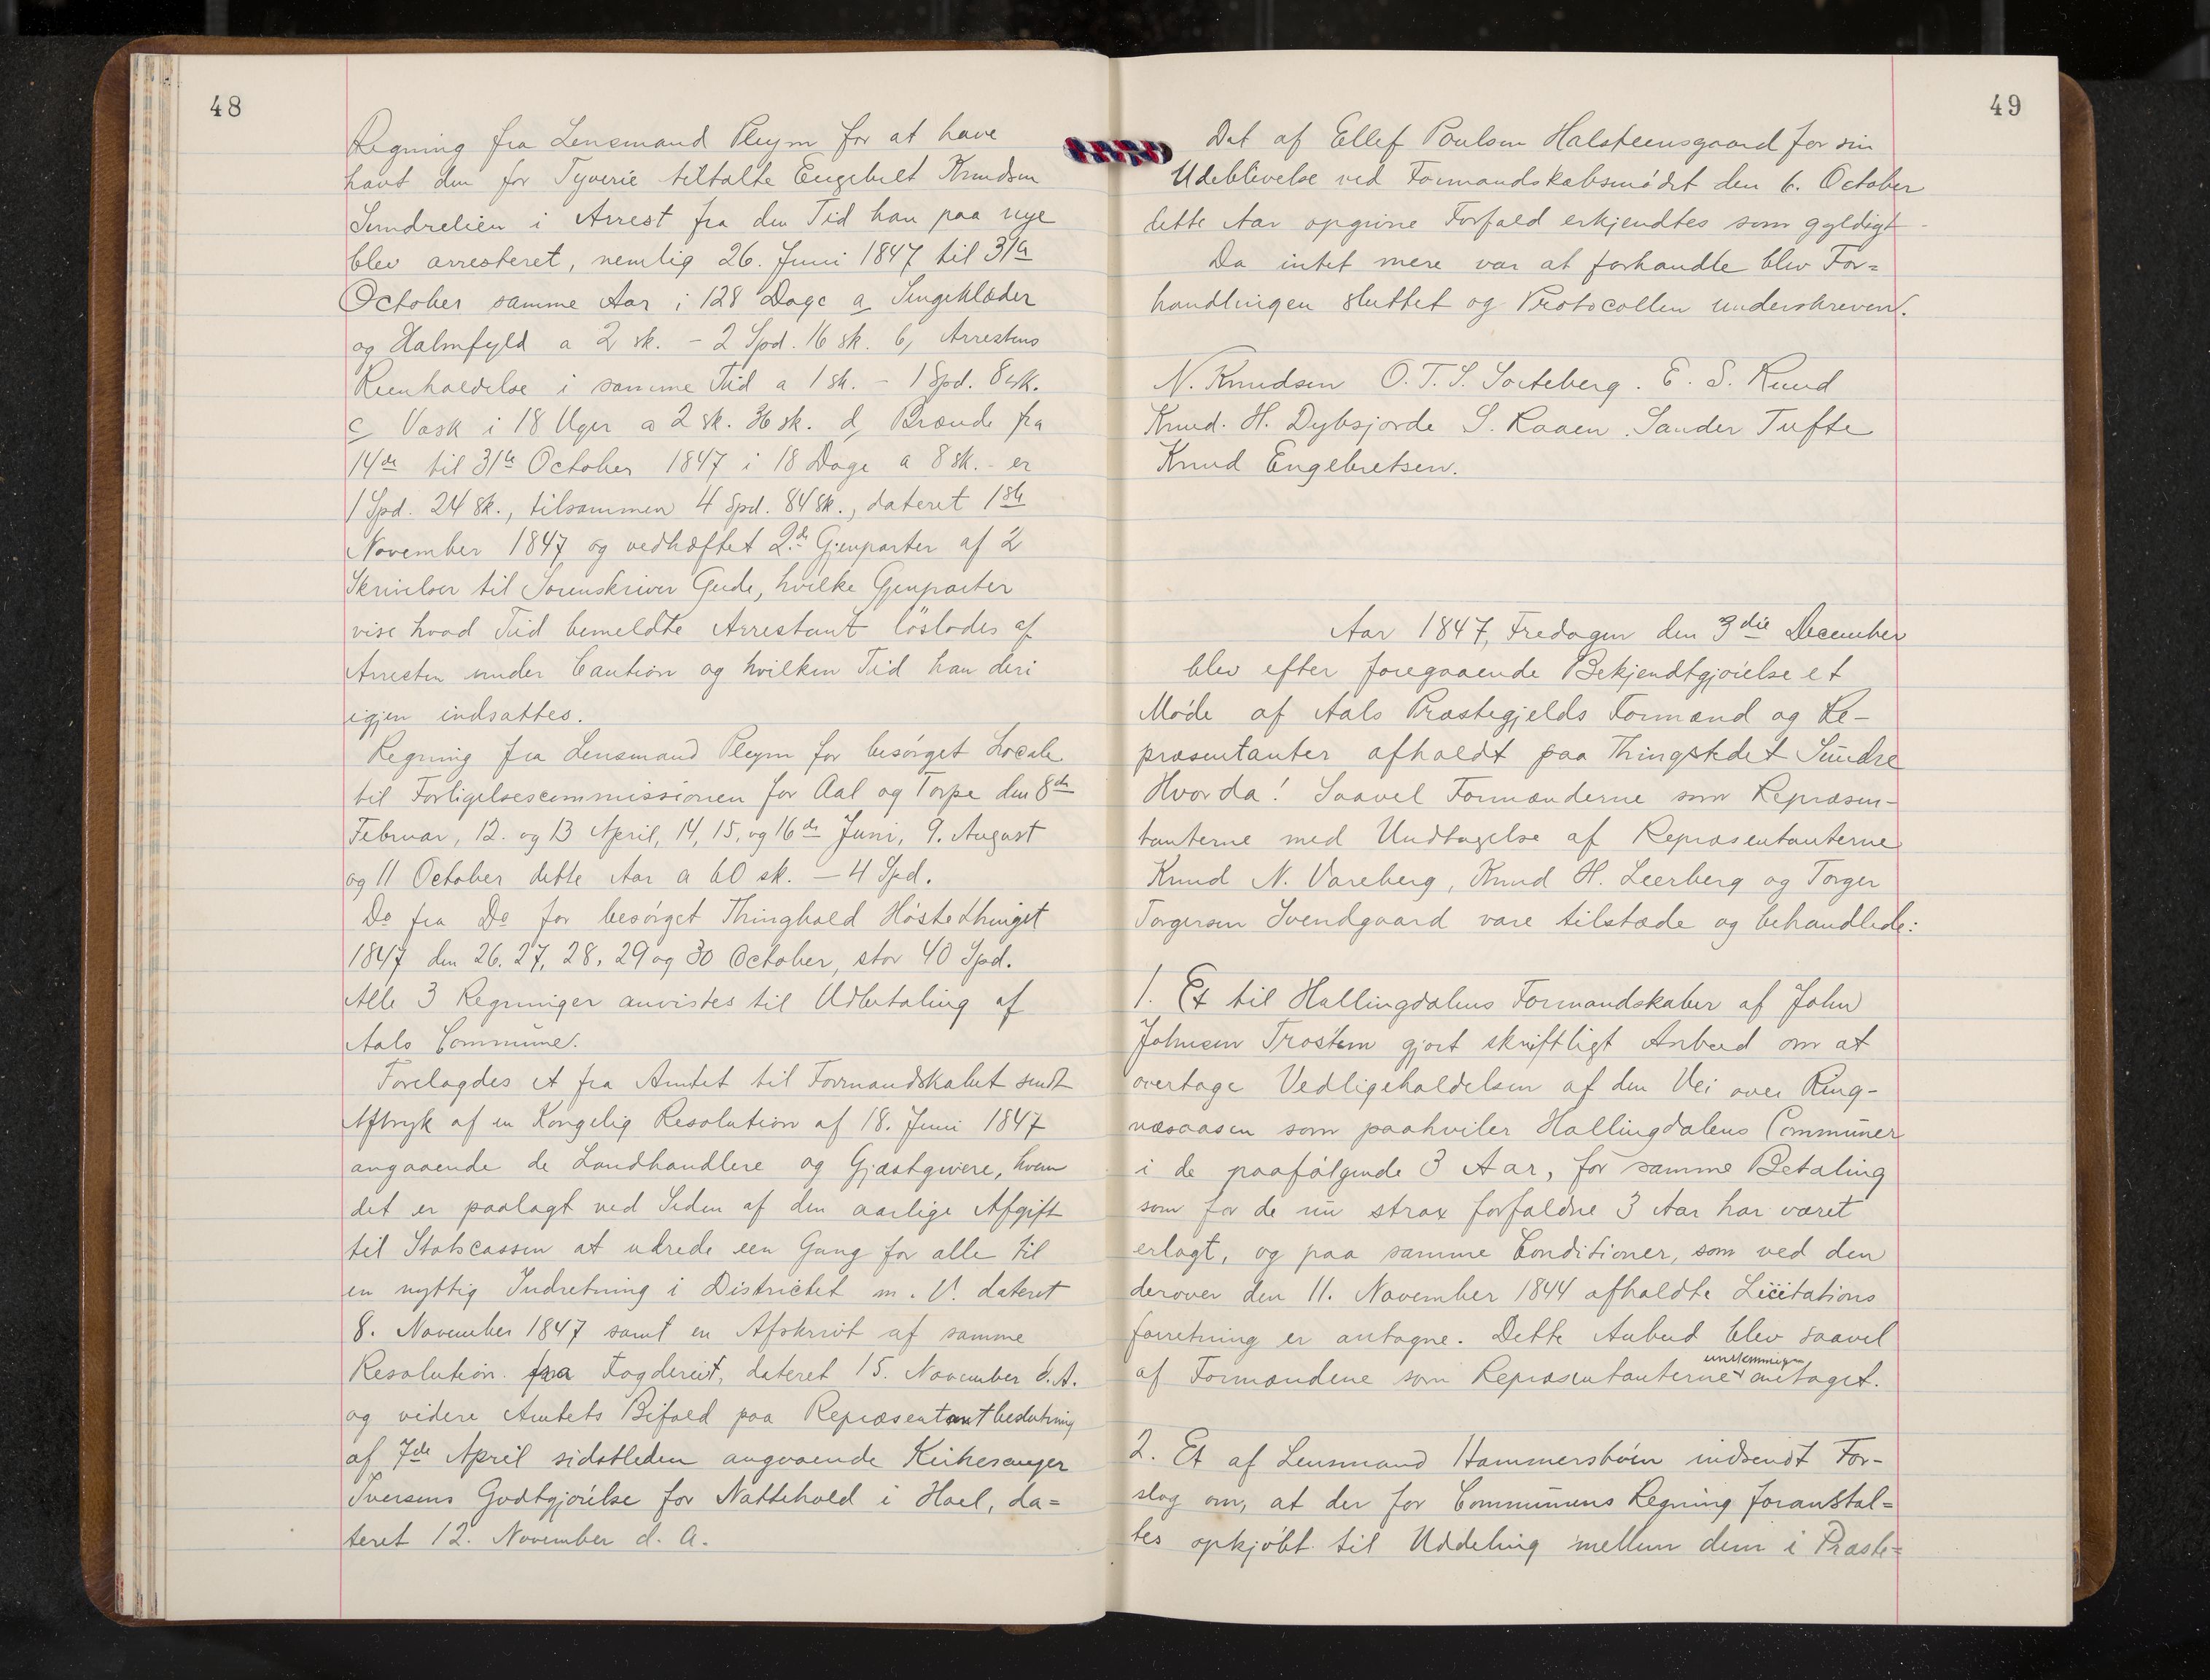 48
Regning fra Lensmand Pleym for at have
havt den for Tyverie tiltalte Engebret Knudsen
Sundrelien i Arrest fra den Tid han paa nye
blev arresteret, nemlig 26. Juni 1847 til 31te
October samme Aar i 128 Dage a Sengeklæder
og Halmfyld a 2 sk. - 2 Spd. 16 sk. b, Arrestens
Reenholdelse i samme Tid a 1 sk. - 1 Spd. 8 sk.
c Vask i 18 Uger a 2 sk. 36 sk. d, Brænde fra
14de til 31te October 1847 i 18 Dage a 8 sk. - er
1 Spd. 24 sk., tilsammen 4 Spd. 84 sk., dateret 1ste
November 1847 og vedhæftet 2de Gjenparter af 2
Skrivelser til Sorenskriver Gude, hvilke Gjenparter
vise hvad Tid bemeldte Arrestant löslodes af
Arresten under Caution og hvilken Tid han deri
igjen indsattes.
Regning fra Lensmand Pleym for besørget Locale
til Forligelsescommissionen for Aal og Torpe den 8de
Februar, 12. og 13 April, 14, 15, og 16de Juni, 9. August
og 11 October dette Aar a 60 sk. - 4 Spd.
Do fra Do for besørget Thinghold Høstethinget
1847 den 26. 27, 28, 29 og 30 October, stor 40 Spd.
Alle 3 Regninger anvistes til Udbetaling af
Aals Commune.
Forelagdes et fra Amtet til Formandskabet sendt
Aftryk af en Kongelig Resolution af 18. Juni 1847
angaaende de Landhandlere og Gjæstgivere, hvem
det er paalagt ved Siden af den aarlige Afgift
til Statscassen at udrede een Gang for alle til
en nyttig Indretning i Districtet m. V. dateret
8. November 1847 samt en Afskrivt af samme
Resolution fra Fogderiet, dateret 15. November d. A.
og videre Amtets Bifald paa Repræsentantbeslutning
af 7de April sidstleden angaaende Kirkesanger
Iversens Godtgjørelse for Nattehold i Hoel, da=
teret 12. November d. A.
49
Det af Ellef Poulsen Halsteensgaard for sin
Udeblivelse ved Formandskabsmødet den 6. October
dette Aar opgivne Forfald erkjendtes som gyldigt
Da intet mere var at forhandle blev For=
handlingen sluttet og Protocollen underskreven.
N. Knudsen O. T. S. Sorteberg. E. S. Ruud
Knud. H. Dybsjorde S. Raaen. Sander Tufte
Knud Engebretsen.
Aar 1847, Fredagen den 3die December
blev efter foregaaende Bekjendtgjørelse et
Møde af Aals Præstegjelds Formænd og Re-
præsentanter afholdt paa Thingstedet Sundre
Hvorda! Saavel Formænderne som Repræsen-
tanterne med Undtagelse af Repræsentanterne
Knud N. Vareberg, Knud H. Leerberg og Torger
Torgersen Svendgaard vare tilstæde og behandlede:
1. Et til Hallingdalens Formandskaber af John
Johnsen Trostem gjort skriftligt Anbud om at
overtage Vedligeholdelsen af den Vei over Ring-
næsaasen som paahviler Hallingdalens Communer
i de paafølgende 3 Aar, for samme Betaling
som for de nu strax forfaldne 3 Aar har været
erlagt, og paa samme Conditioner, som ved den
derover den 11. November 1844 afholdte Licitations
forretning er antagne. Dette Anbud blev saavel
af Formændene som Repræsentanterne eenstemmigen antaget.
2. Et af Lensmand Hammersbøen indsendt For-
slag om, at der for Communens Regning foranstal=
tes opkjøbt til Uddeling mellem dem i Præste=